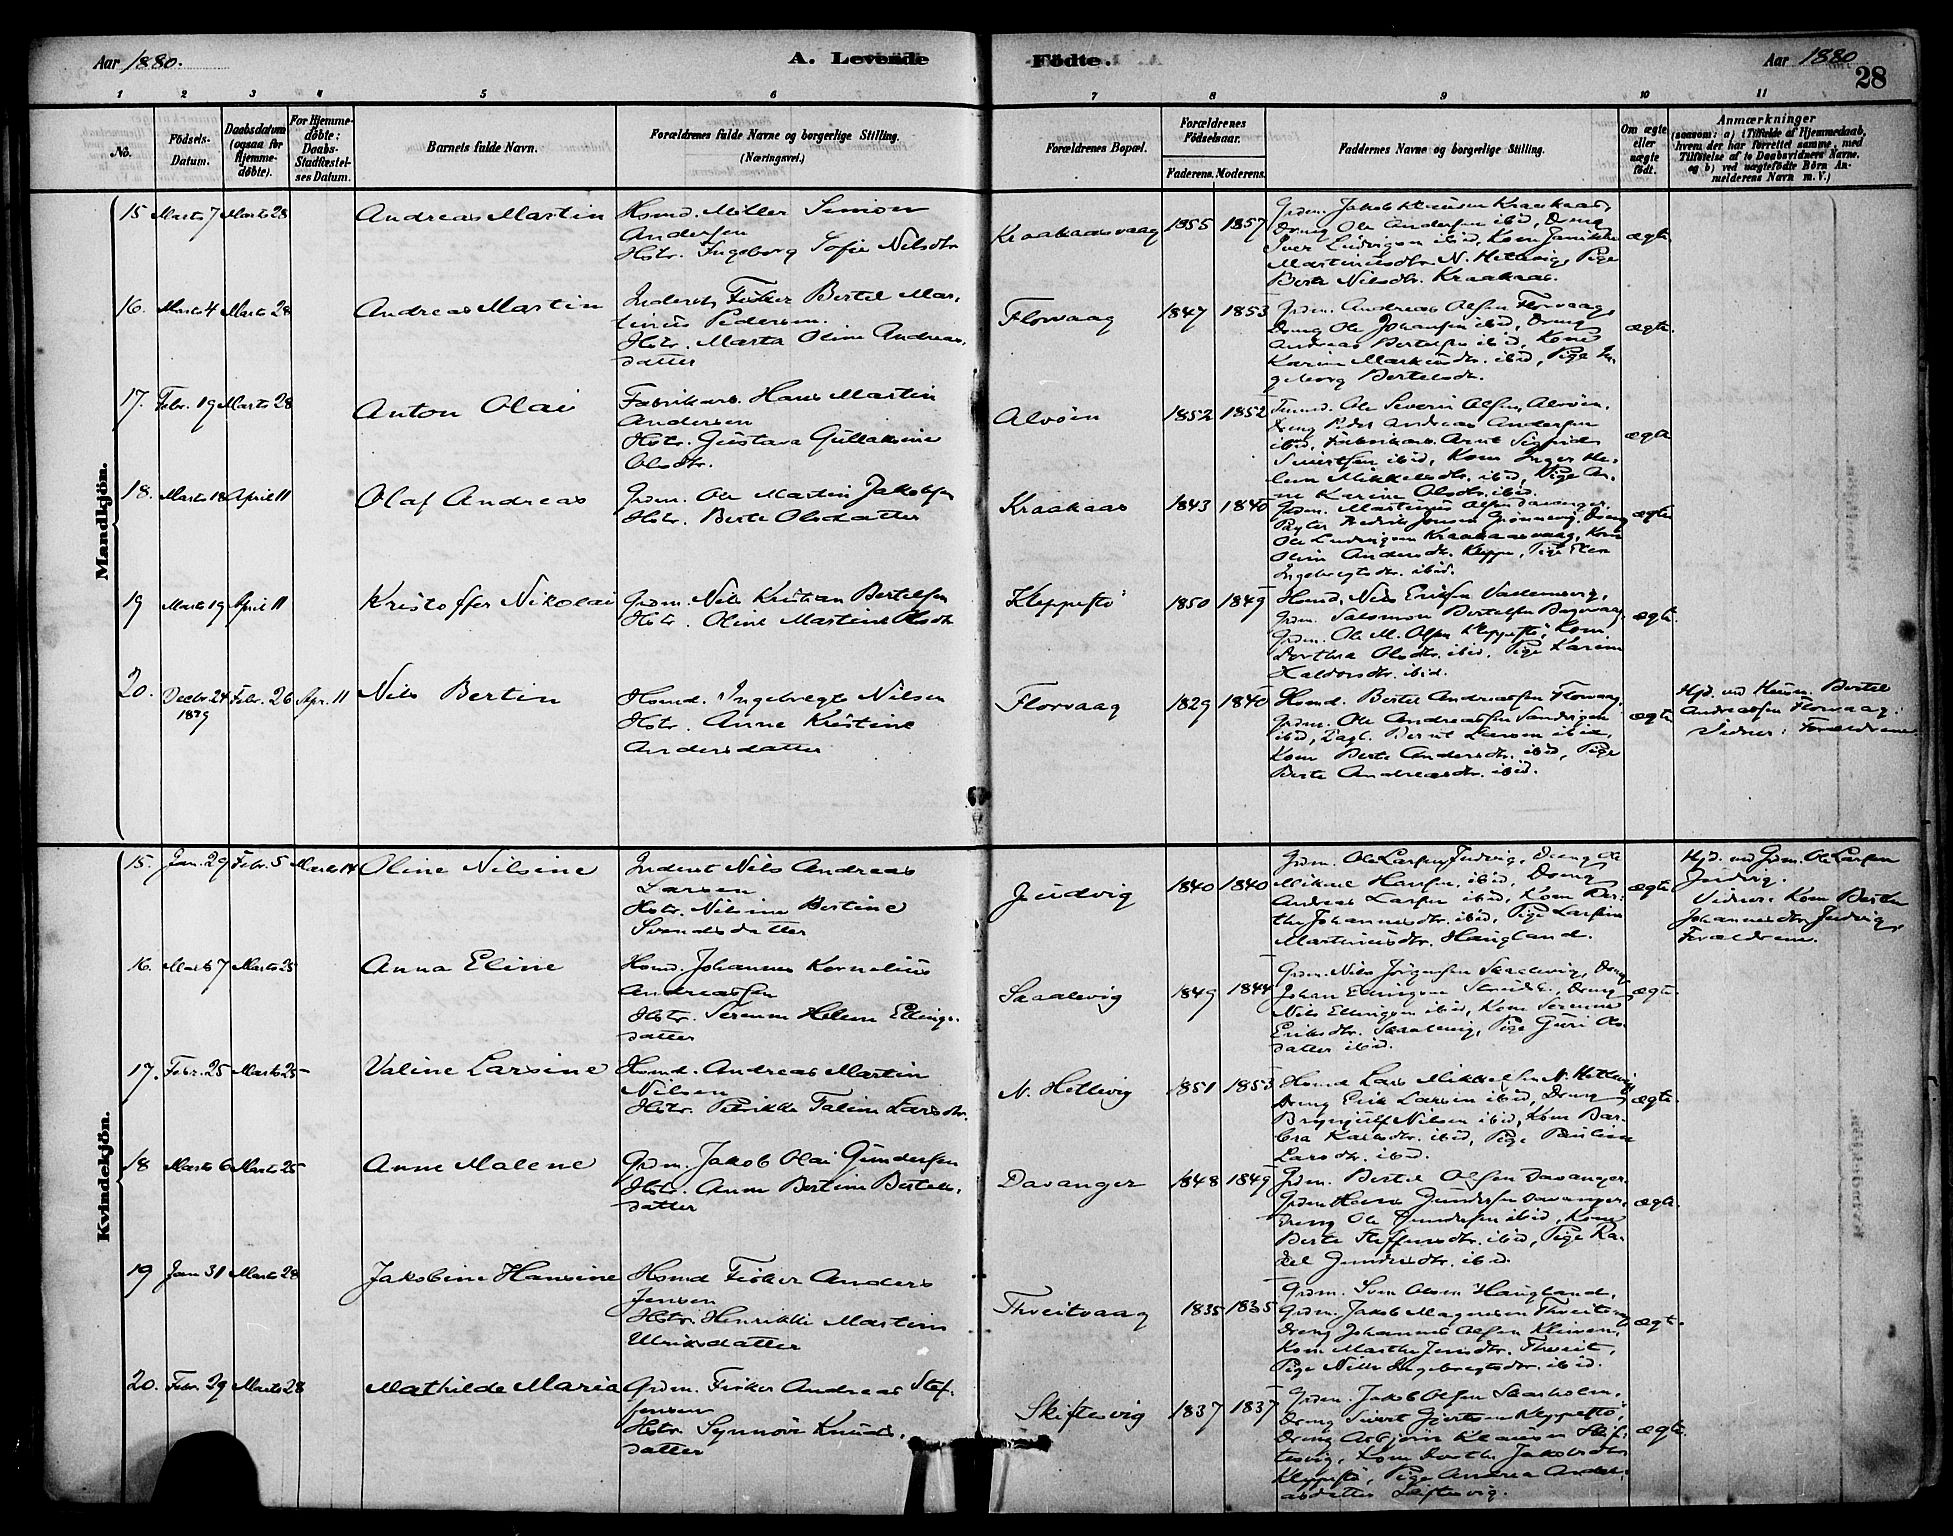 Aar 1880.
A. Levende Födte.
Aar 1880
28
1 2 3 4 5 6 7 8 9 10 11
No.
Födsels-
Datum.
Daabsdatum
(ogsaa for
Hjemme-
döbte).
For Hjemme-
döbte:
Daabs-
Stadfæstel-
ses Datum.
Barnets fulde Navn.
Forældrenes fulde Navne og borgerlige Stilling.
(Næringsvei.)
Forældrenes Bopæl.
Forældrenes
Födselsaar.
Faderens. Moderens.
Faddernes Navne og borgerlige Stilling.
Om ægte
eller
uægte
födt.
Anmærkninger
(saasom: a) i Tilfælde af Hjemmedaab,
hvem der har forrettet samme, med
Tilföielse af to Daabsvidners Navne.
og b) ved uægtefödte Börn An-
melderens Navn m. V.)
Mandkjön.
15 Marts 7 Marts 28
Andreas Martin
Hsmd. Möller Simon
Andersen
Hstr. Ingeborg Sofie Nilsdtr
Kraakaasvaag
1855 1857
Grdm. Jakob Klausen Kraakaas,
Dreng Ole Andersen ibid, Dreng
Iver Ludvigsen ibid, Kone Jannikke
Martinusdtr. N. Hetlevig, Pige
Berte Nilsdtr. Kraakaas.
ægte
16. Marts 4 Marts 28
Andreas Martin
Inderst, Fisker Bertel Mar-
tinus Pedersen.
Hstr. Marta Oline Andreas-
datter
Florvaag
1847 1853
Grdm. Andreas Olsen Florvaag,
Dreng Ole Johansen ibid, Dreng
Andreas Bertelsen ibid, Kone
Karine Markusdtr. ibid, Pige In-
geborg Bertelsdtr.
ægte.
17. Febr. 19 Marts 28
Anton Olai
Fabrikarb. Hans Martin
Andersen
Hstr. Gustava Gullaksine
Olsdtr.
Alvöen
1852 1852
Ole Severin Olsen, Alvöen,
Dreng Peder Andreas Andersen
ibid, Fabrikarb. Arnt Sigfrid
Sivertsen ibid, Kone Inger He-
lene Mikkelsdtr. ibid, Pige An-
ne Karine Olsdtr. ibid.
ægte
18. Marts 18 April 11
Olaf Andreas
Grdm. Ole Martin Jakobsen
Hstr. Berte Olsdatter
Kraakaas
1843 1840
Grdm. Martinus Olsen Davanger,
Fredrik Jonsen Grönnevig, Dreng
Ole Ludvigsen Kraakaasvaag, Kone
Oline Andersdtr. Kleppe, Pige Elen
Ingebregtsdtr. ibid.
ægte
19 Marts 19 April 11
Kristoffer Nikolai
Grdm. Nils Kristian Bertelsen
Hstr. Oline Martine Olsdtr
Kleppestö
1850 1849
Hsmd. Nils Eriksen
Grdm. Salomon Bertelsen
Grdm. Ole M. Olsen Kleppestö, Kone
Dorthea Olsdtr. ibid. Pige Karine
Haldorsdtr. ibid.
ægte.
20. Decbr. 24 Febr. 26 Apr. 11
1879
Nils Bertin
Hsmd. Ingebregt Nilsen
Hstr. Anne Kristine
Andersdatter
Florvaag
1829 1840
Hsmd. Bertel Andreassen Florvaag,
Grdm. Ole Andreassen Sandvigen
ibid, Dagl. Bernt Larsen ibid,
Kone Berte Andersdtr. ibid, Pige
Berte Andreasdtr. ibid.
ægte
Hjd. ved Bertel
Andreassen Florvaag.
Vidner: Forældrene
Kvindekjön.
15. Jan. 29 Febr. 5 Marts 14
Oline Nilsine
Inderst Nils Andreas
Larsen
Hstr. Nilsine Bertine
Svendsdatter
Judvig
1840 1840
Grdm. Ole Larsen Judvig, Dreng Ole
Mikael Hansen ibid, Dreng
Andreas Larsen ibid, Kone Ber-
the Johannesdtr. ibid, Pige Larsine
Martinusdtr. Haugland.
ægte
Hjd. ved Grdm. Ole Larsen
Judvig.
Vidner: Kone Berthe
Johannesdtr Judvig,
Forældrene.
16. Marts 7 Marts 25
Anna Eline
Hsmd. Johannes Kornelius
Andreassen
Hstr. Serenne Helene Ellings-
datter
Skaalevig
1849 1844
Grdm. Nils Jörgensen Skaalevig, Dreng
Johan Ellingsen Dreng
Nils Ellingsen ibid, Kone Serenne
Eriksdtr. Skaalevig, Pige Guri Ols-
datter ibid.
ægte.
17. Febr. 25 Marts 25
Valine Larsine
Hsmd. Andreas Martin
Nilsen
Hstr. Petrikke Taline Larsdtr.
N. Hetlevig
1851 1853
Hsmd Lars Mikkelsen N. Hetlevig
Dreng Erik Larsen ibid, Dreng
Brynjulf Nilsen ibid, Kone Bar-
bra Karlsdtr. ibid, Pige Pauline
Larsdtr. ibid.
ægte.
18 Marts 6 Marts 25
Anne Malene
Grdm. Jakob Olai Gundersen
Hstr. Anne Bertine Bertels-
datter
Davanger
1848 1849
Grdm. Bertel Olsen Davanger
Grdm Hans Gundersen Davanger,
Dreng Ole Gundersen ibid, Kone
Berte Steffensdtr. ibid, Pige Ra-
kel Gundersdtr. ibid.
ægte.
19 Jan 31 Marts 28
Jakobine Hansine
Hsmd Fisker Anders
Jensen
Hstr. Henrikke Martine
Ulriksdatter
Thveitvaag
1835 1835
Grdm. Sven Olsen Haugland,
Grdm. Jakob Magnesen Thveitvaag
Dreng Johannes Olsen
Kone Marthe Jensdtr. Thveit,
Pige Nille Ingebregtsdtr. ibid.
ægte.
20. Febr. 29 Marts 28
Mathilde Maria
Grdm. Fisker Andreas Stef-
fensen
Hstr. Synnöve Knuds-
datter
Skiftesvig
1837 1837
Grdm. Jakob Olsen
Dreng Sivert Gjertsen Kleppestö,
Dreng Asbjörn Klausen Skif-
tesvig, Kone Dorthe Jakobsdtr
Kleppestö, Pige Andrea Andre-
asdatter Skiftesvig.
ægte.